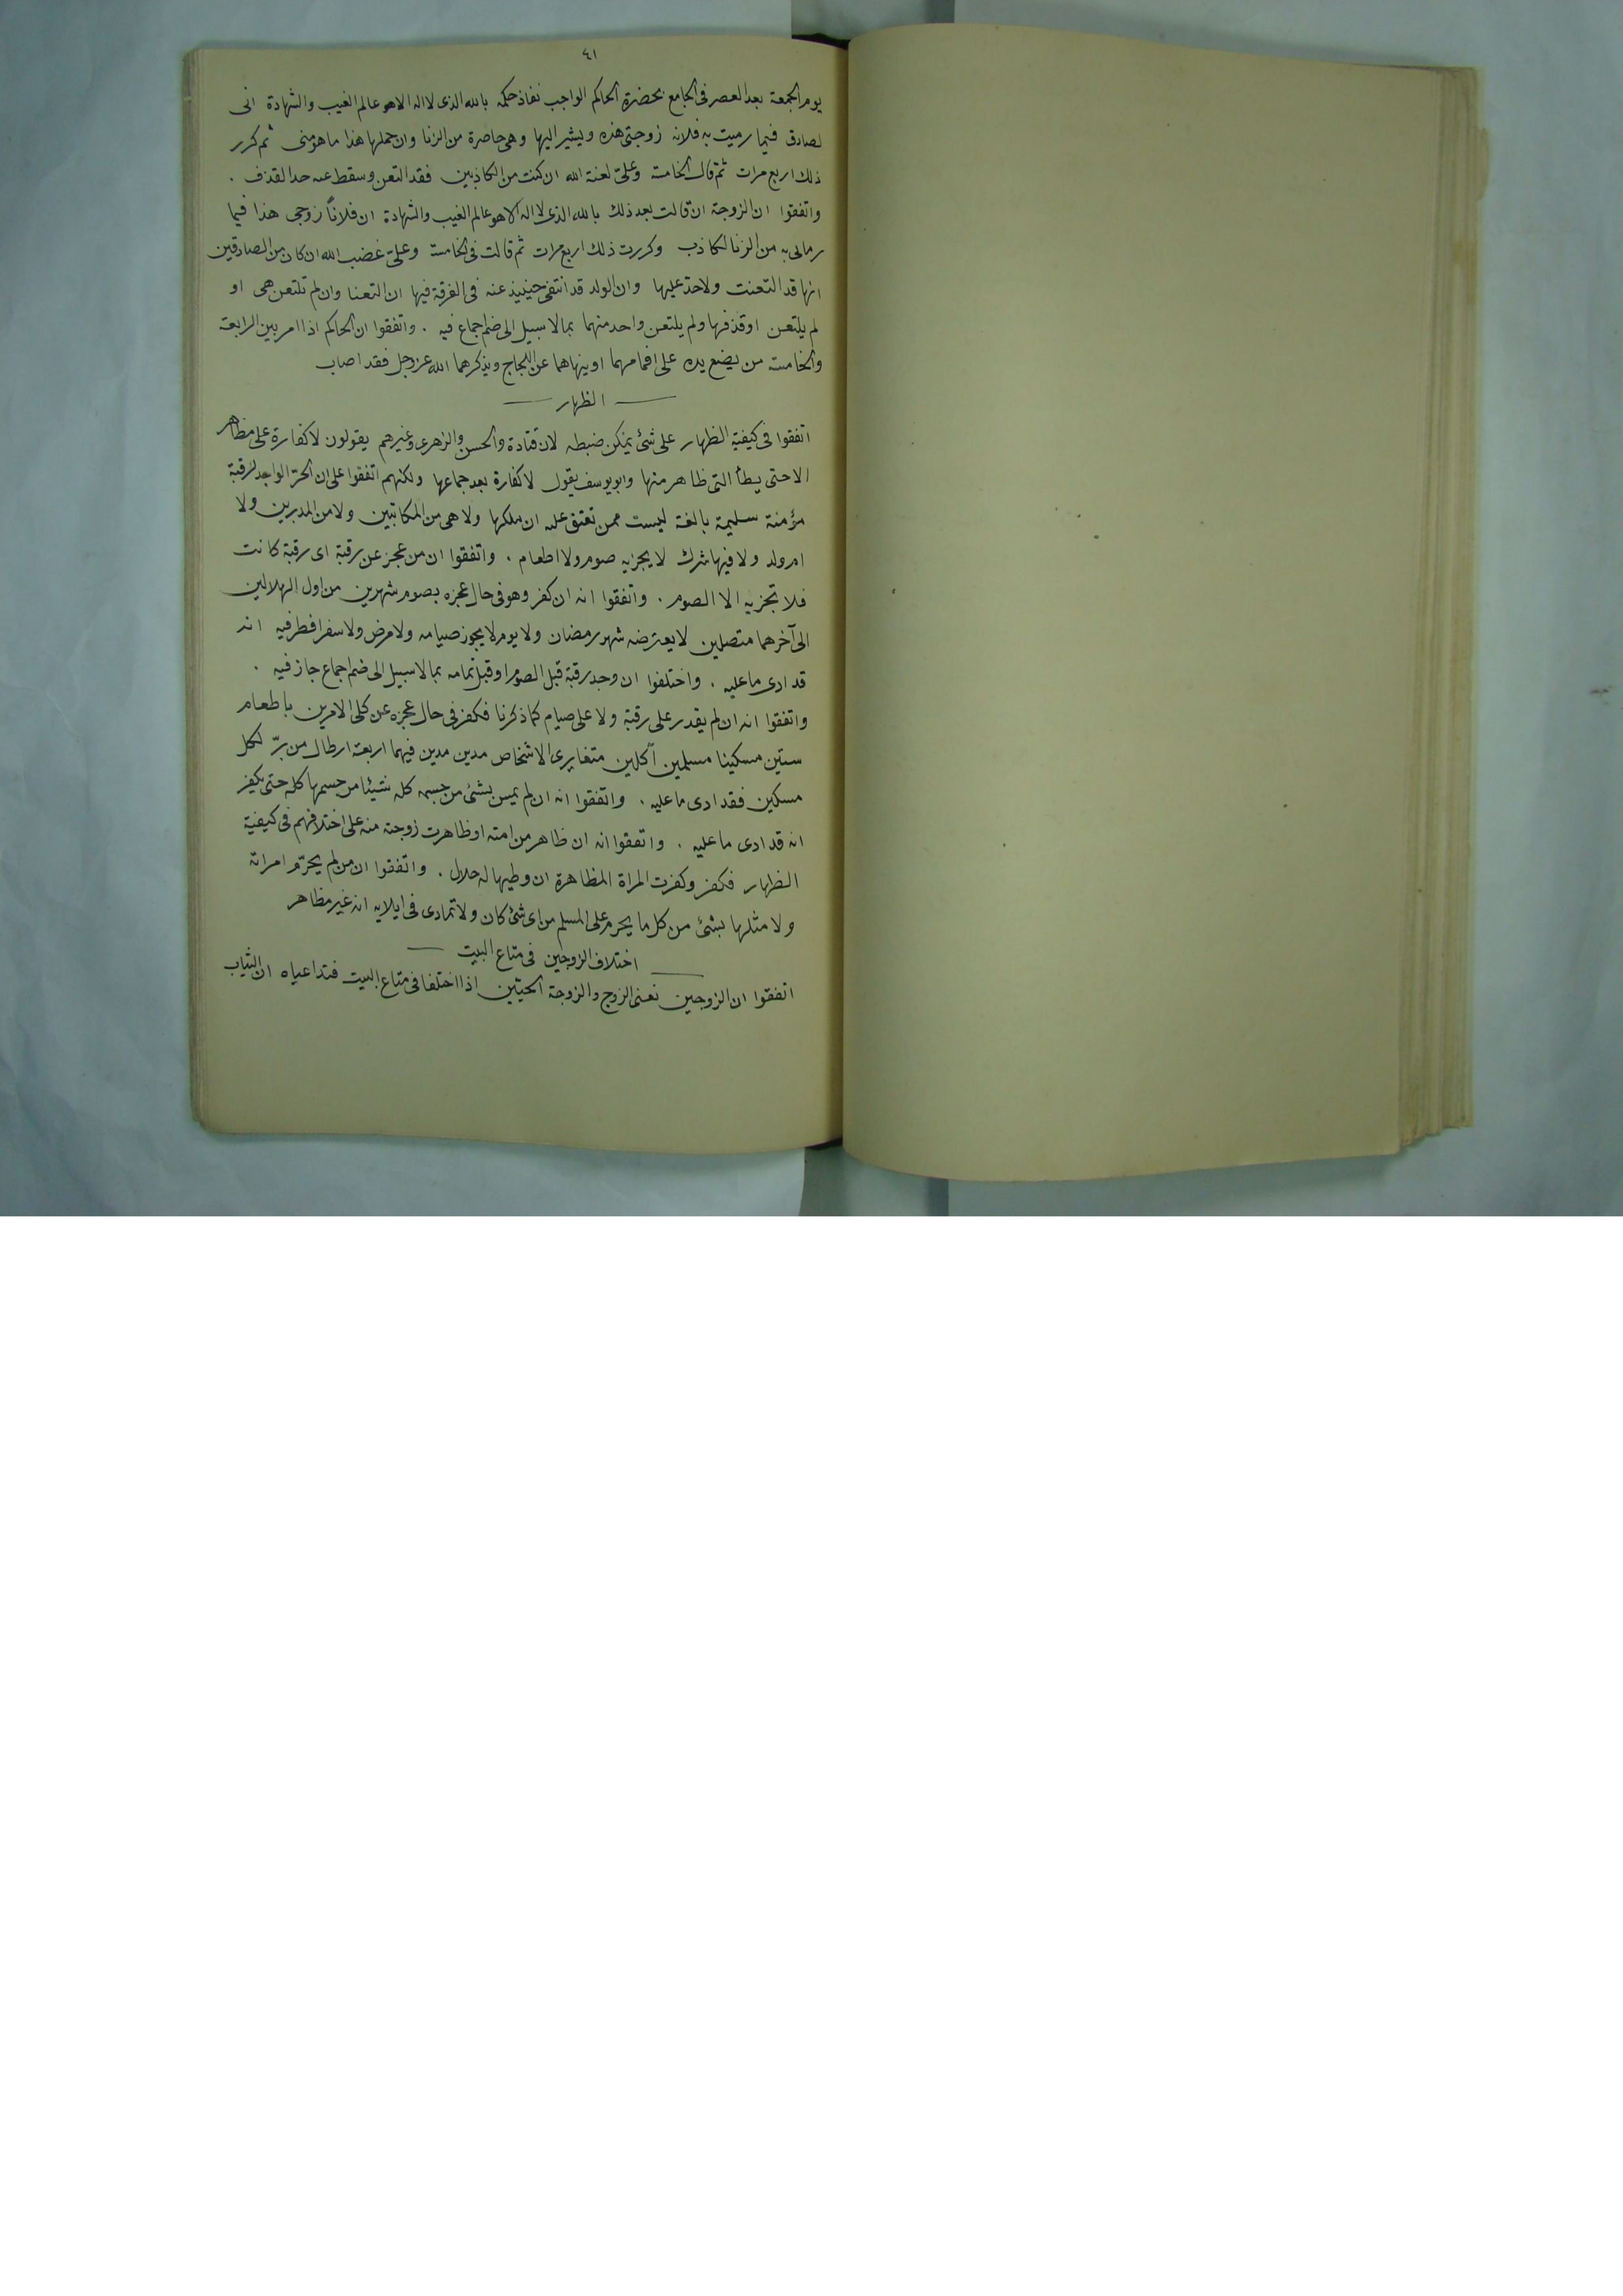 ٤١
يوم الجمعة بعد العصر فى الجامع بحضرة الحاكم الواجب نفاذ حكمه بالله الذى لا اله الا هو عالم الغيب والشهادة انى
لصادق فيما رميت به فلانه زوجتى هذه ويشير اليها وهى حاضرة من الزنا وان حملها هذا ما هو منى ثم كرر
ذلك اربع مرات ثم قال الخامسة وعلىّ لعنة الله ان كنت من الكاذبين فقد التعن وسقط عنه حد القذف .
واتفقوا ان الزوجة ان قالت بعد ذلك بالله الذى لا اله الا هو عالم الغيب والشهادة ان فلاناً زوجى هذا فيما
رمانى به من الزنا لكاذب وكررت ذلك اربع مرات ثم قالت فى الخامسة وعلىّ غضب الله ان كان من الصادقين
انها قد التعنت ولا حد عليها وان الولد قد انتفى حينيذ عنه فى الفرقة فيها ان التعنا وان لم تلتعن هى او
لم يلتعن او قذفها ولم يلتعن واحد منهما بما لا سبيل الى ضم اجماع فيه . واتفقوا ان الحاكم اذا امر بين الرابعة
والخامسة من يضع يده على افمامهما او ينهاهما عن اللجاج ويذكرهما الله عز وجل فقد اصاب
الظهار
اتفقوا فى كيفية الظهار على شئ يمكن ضبطه لان قتادة والحسن والزهرى وغيرهم يقولون لا كفارة على مظاهر
الا حتى يطأ التى ظاهر منها وابو يوسف يقول لا كفارة بعد جماعها ولكنهم اتفقوا على ان الحر الواجد لرقبة
مؤمنة سليمة بالغة ليست ممن تعتق عليه ان ملكها ولا هى من المكاتبين ولا من المدبرين ولا
ام ولد ولا فيها شرك لا يجزيه صوم ولا اطعام . واتفقوا ان من عجز عن رقبة اى رقبة كانت
فلا تجزيه الا الصوم . واتفقوا انه ان كفر وهو فى حال عجزه بصوم شهرين من اول الهلالين
الى آخرهما متصلين لا يعترضه شهر رمضان ولا يوم لا يجوز صيامه ولا مرض ولا سفر افطر فيه انه
قد ادى ما عليه . واختلفوا ان وجد رقبة قبل الصوم او قبل تمامه بما لا سبيل الى ضم اجماع جاز فيه .
واتفقوا انه ان لم يقدر على رقبة ولا على صيام كما ذكرنا فكفر فى حال عجزه عن كلى الامرين باطعام
ستين مسكينا مسلمين آكلين متغايرى الاشخاص مدين مدين فيهما اربعة ارطال من برّ لكل
مسكين فقد ادى ما عليه . واتفقوا انه ان لم يمس بشئ من جسمه كله شيئا من جسمها كله حتى يكفر
انه قد ادى ما عليه . واتفقوا انه ان ظاهر من امته او ظاهرت زوجته منه على اختلافهم فى كيفية
الظهار فكفر وكفرت المراة المظاهرة ان وطيها له حلال . واتفقوا ان من لم يحرّم امراته
ولا مثلها بشئ من كل ما يحرم على المسلم من اى شئ كان ولا تمادى فى ايلايه انه غير مظاهر
اختلاف الزوجين فى متاع البيت
اتفقوا ان الزوجين نعنى الزوج والزوجة الحيّين اذا اختلفا فى متاع البيت فتداعياه ان الثياب